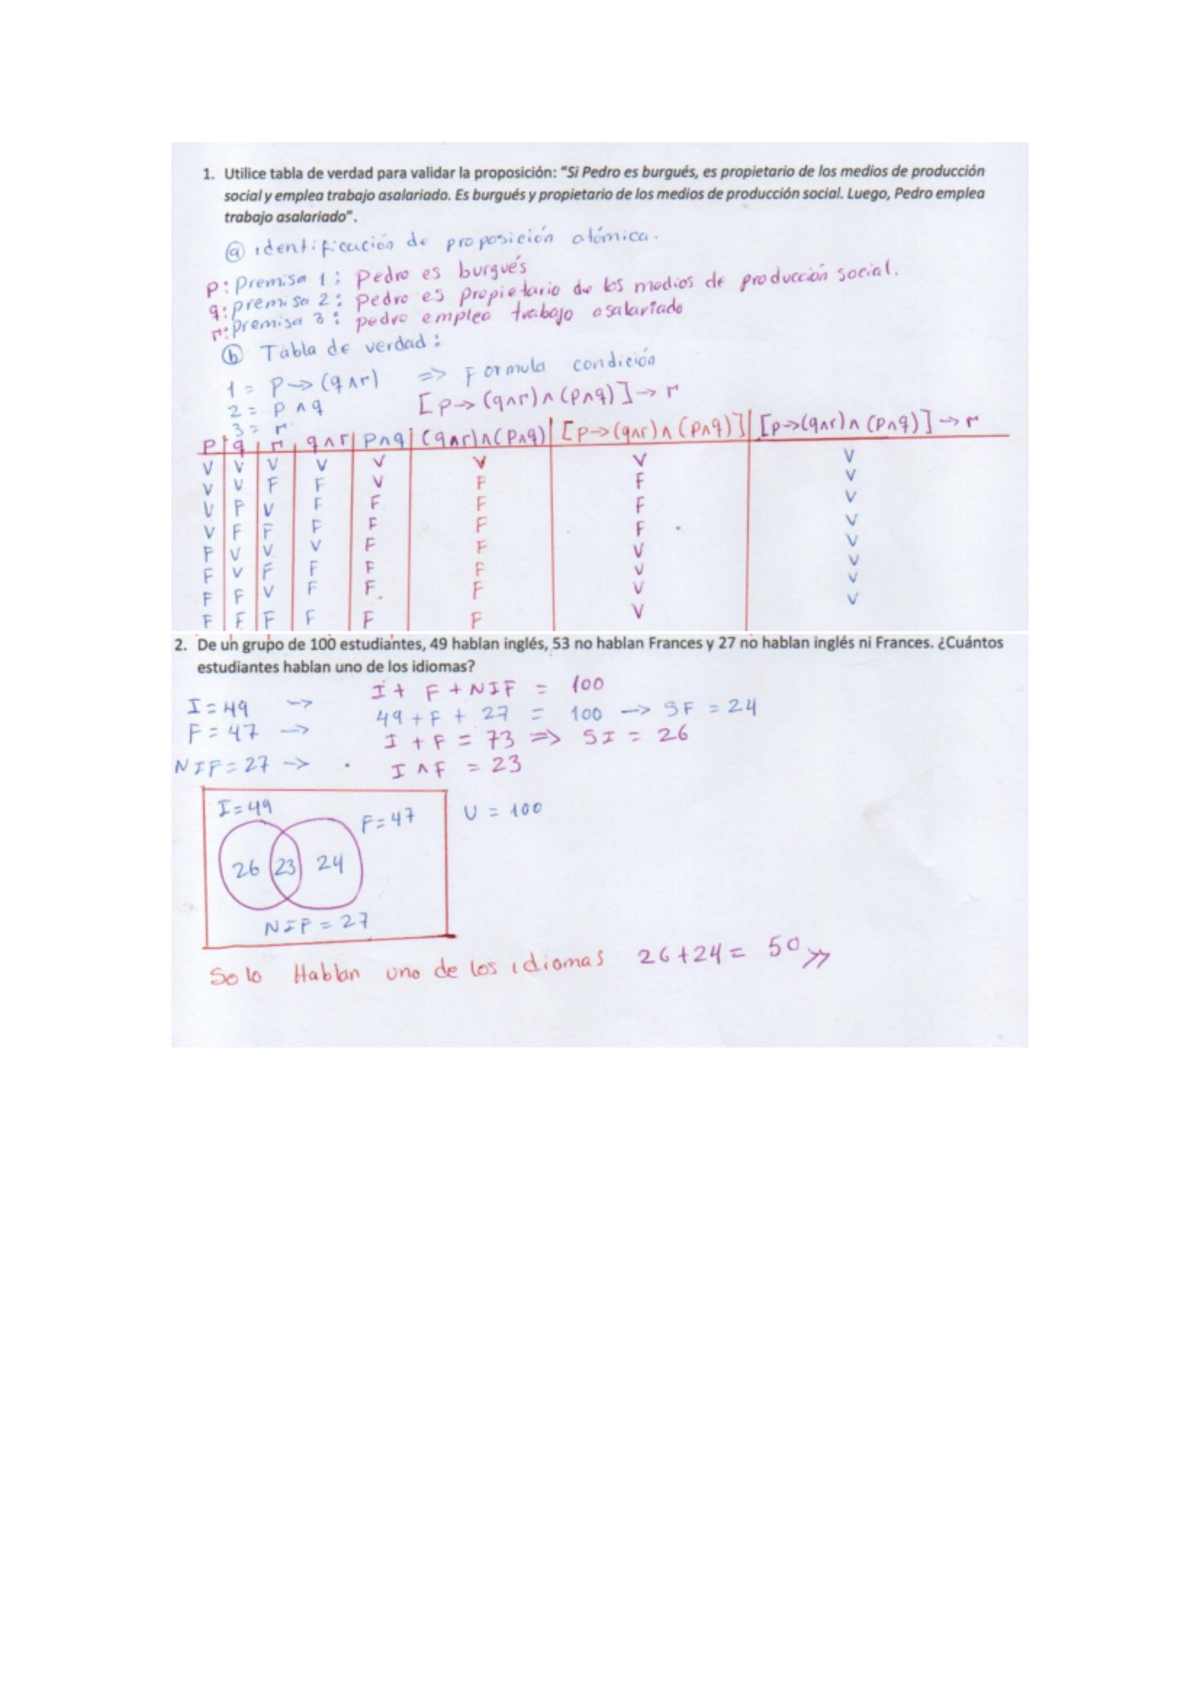 1. Utilice tabla de verdad para validar la proposición: "Si Pedro es burgués, es propietario de los medios de producción
social y emplea trabajo asalariado. Es burgués y propietario de los medios de producción social. Luego, Pedro emplea
trabajo asalariado".
ⓐ identificación de proposición atómica.
p: Premisa 1: Pedro es burgués
q: premisa 2: Pedro es propietario de los medios de producción social.
r: premisa 3: pedro emplea trabajo asalariado
ⓑ Tabla de verdad:
1 = P → (q∧r) => Formula condición
2 = P ∧ q [P→(q∧r)∧(P∧q)]→r
3 = r
P q r q∧r P∧q (q∧r)∧(P∧q) [P→(q∧r)∧(P∧q)] [P→(q∧r)∧(P∧q)]→r
V V V V V V V V
V V F F V F F V
V F V F F F F V
V F F F F F F V
F V V V F F V V
F V F F F F V V
F F V F F. F V V
F F F F F F V V
2. De un grupo de 100 estudiantes, 49 hablan inglés, 53 no hablan Frances y 27 no hablan inglés ni Frances. ¿Cuántos
estudiantes hablan uno de los idiomas?
I + F + NIF = 100
I = 49 -> 49 + F + 27 = 100 -> SF = 24
F = 47 -> I + F = 73 => SI = 26
NIF = 27 -> I ∧ F = 23
I = 49
F = 47 U = 100
26 23 24
NIF = 27
Solo Hablan uno de los idiomas 26+24 = 50